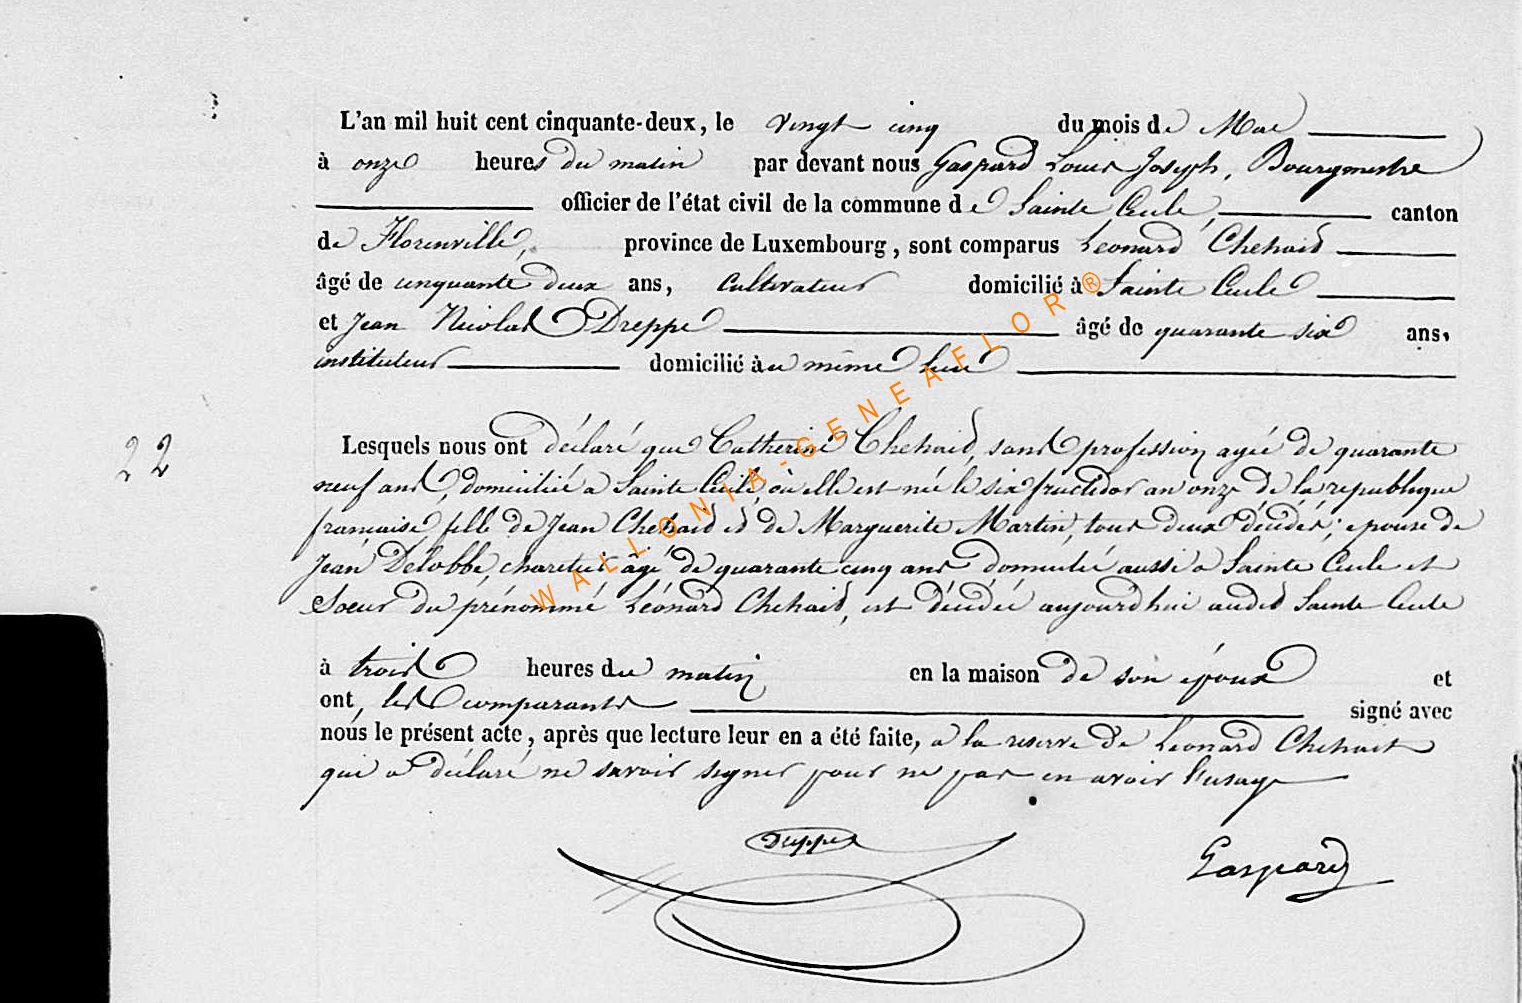 L'an mil huit cent cinquante-deux, le vingt cinq du mois de Mai
à onze heures du matin par devant nous Gaspard Louis Joseph, Bourgmestre
officier de l'état civil de la commune de Sainte Cecile, canton
de Florenville, province de Luxembourg, sont comparus Léonard Chehaid
âgé de cinquante deux ans, cultivateur domicilié à Sainte Cecile
et Jean Nicolas Dreppe âgé de quarante six ans,
instituteur domicilié au même lieu
22
Lesquels nous ont déclaré que Catherine Chehaid, sans profession agée de quarante
neuf ans, domiciliée a Sainte Cecile, où elle est née le six fructidor an onze de la republique
française, fille de Jean Chehaid et de Marguerite Martin, tous deux décédés; epouse de
Jean Delobbe, charetier âgé de quarante cinq ans domicilié aussi a Sainte Cecile et
Soeur du prénommé Léonard Chehaid, est décédée aujourdhui audit Sainte Cecile
à trois heures du matin en la maison de son époux et
ont, les comparants signé avec
nous le présent acte, après que lecture leur en a été faite, a la reserve de Leonard Chehait
qui a déclaré ne savoir signer pour ne pas en avoir l'usage
Dreppe
Gaspard
WALLONIA-GENEAFLOR®